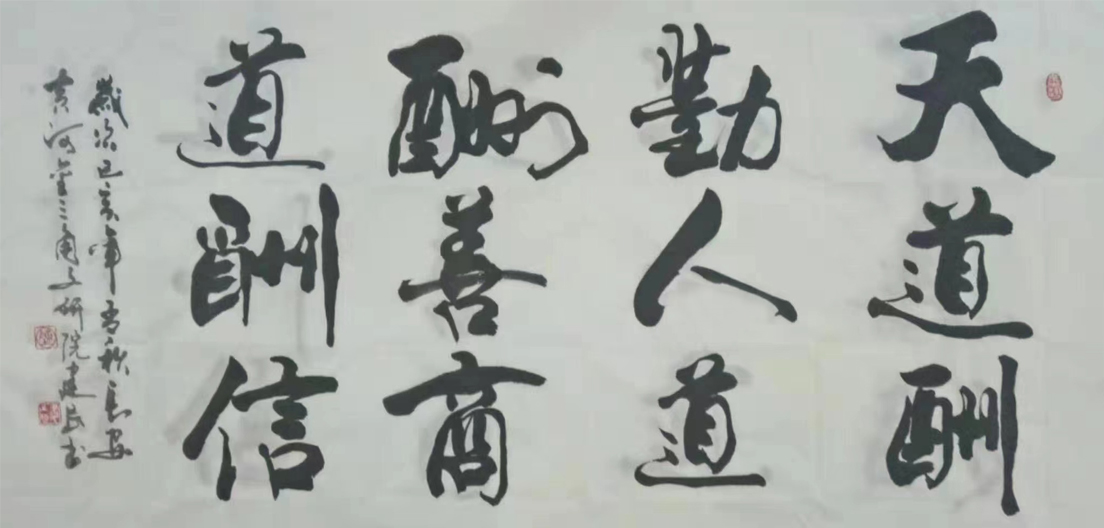 天道酬
勤人道
酬善商
道酬信
歲次己亥年杏秋長安
黄河金三角文研院建民书